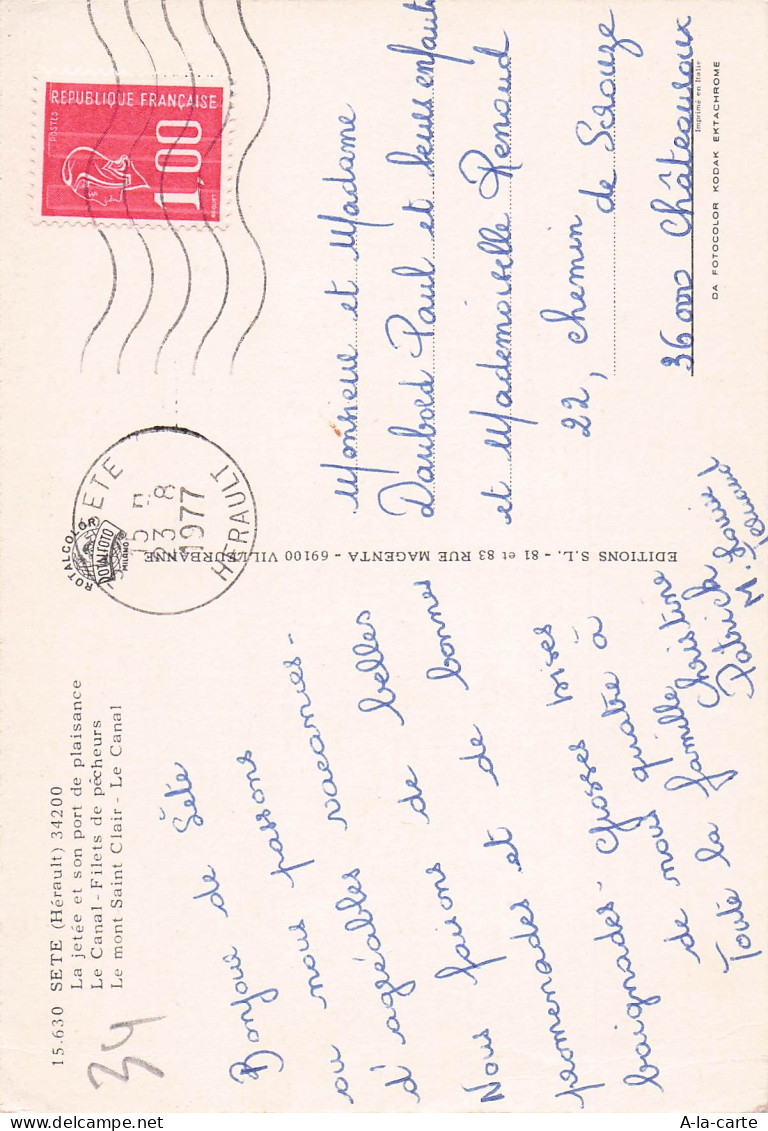 15.630 SETE (Hérault) 34200
La jetée et son port de plaisance
Le Canal - Filets de pêcheurs
Le mont Saint Clair - Le Canal
34
Bonjour de Sète
ou nous passons
d'agréables vacances-
Nous faisons de belles
promenades et de bonnes
baignades- Grosses bises
de nous quatre à
Toute la famille
Christine
Patrick
M. Louise
ROTALCOLOR
ROTALFOTO
MILANO
EDITIONS S.L. - 81 et 83 RUE MAGENTA - 69100 VILLEURBANNE
SETE
15 H
23 - 8
1977
HERAULT
REPUBLIQUE FRANÇAISE
POSTES
1,00
BEQUET
Monsieur et Madame
Daubord Paul et leurs enfants
et Mademoiselle Renaud
22, chemin
de Scrouze
36000 Châteauroux
Imprimé en Italie
DA FOTOCOLOR KODAK EKTACHROME
A-la-carte